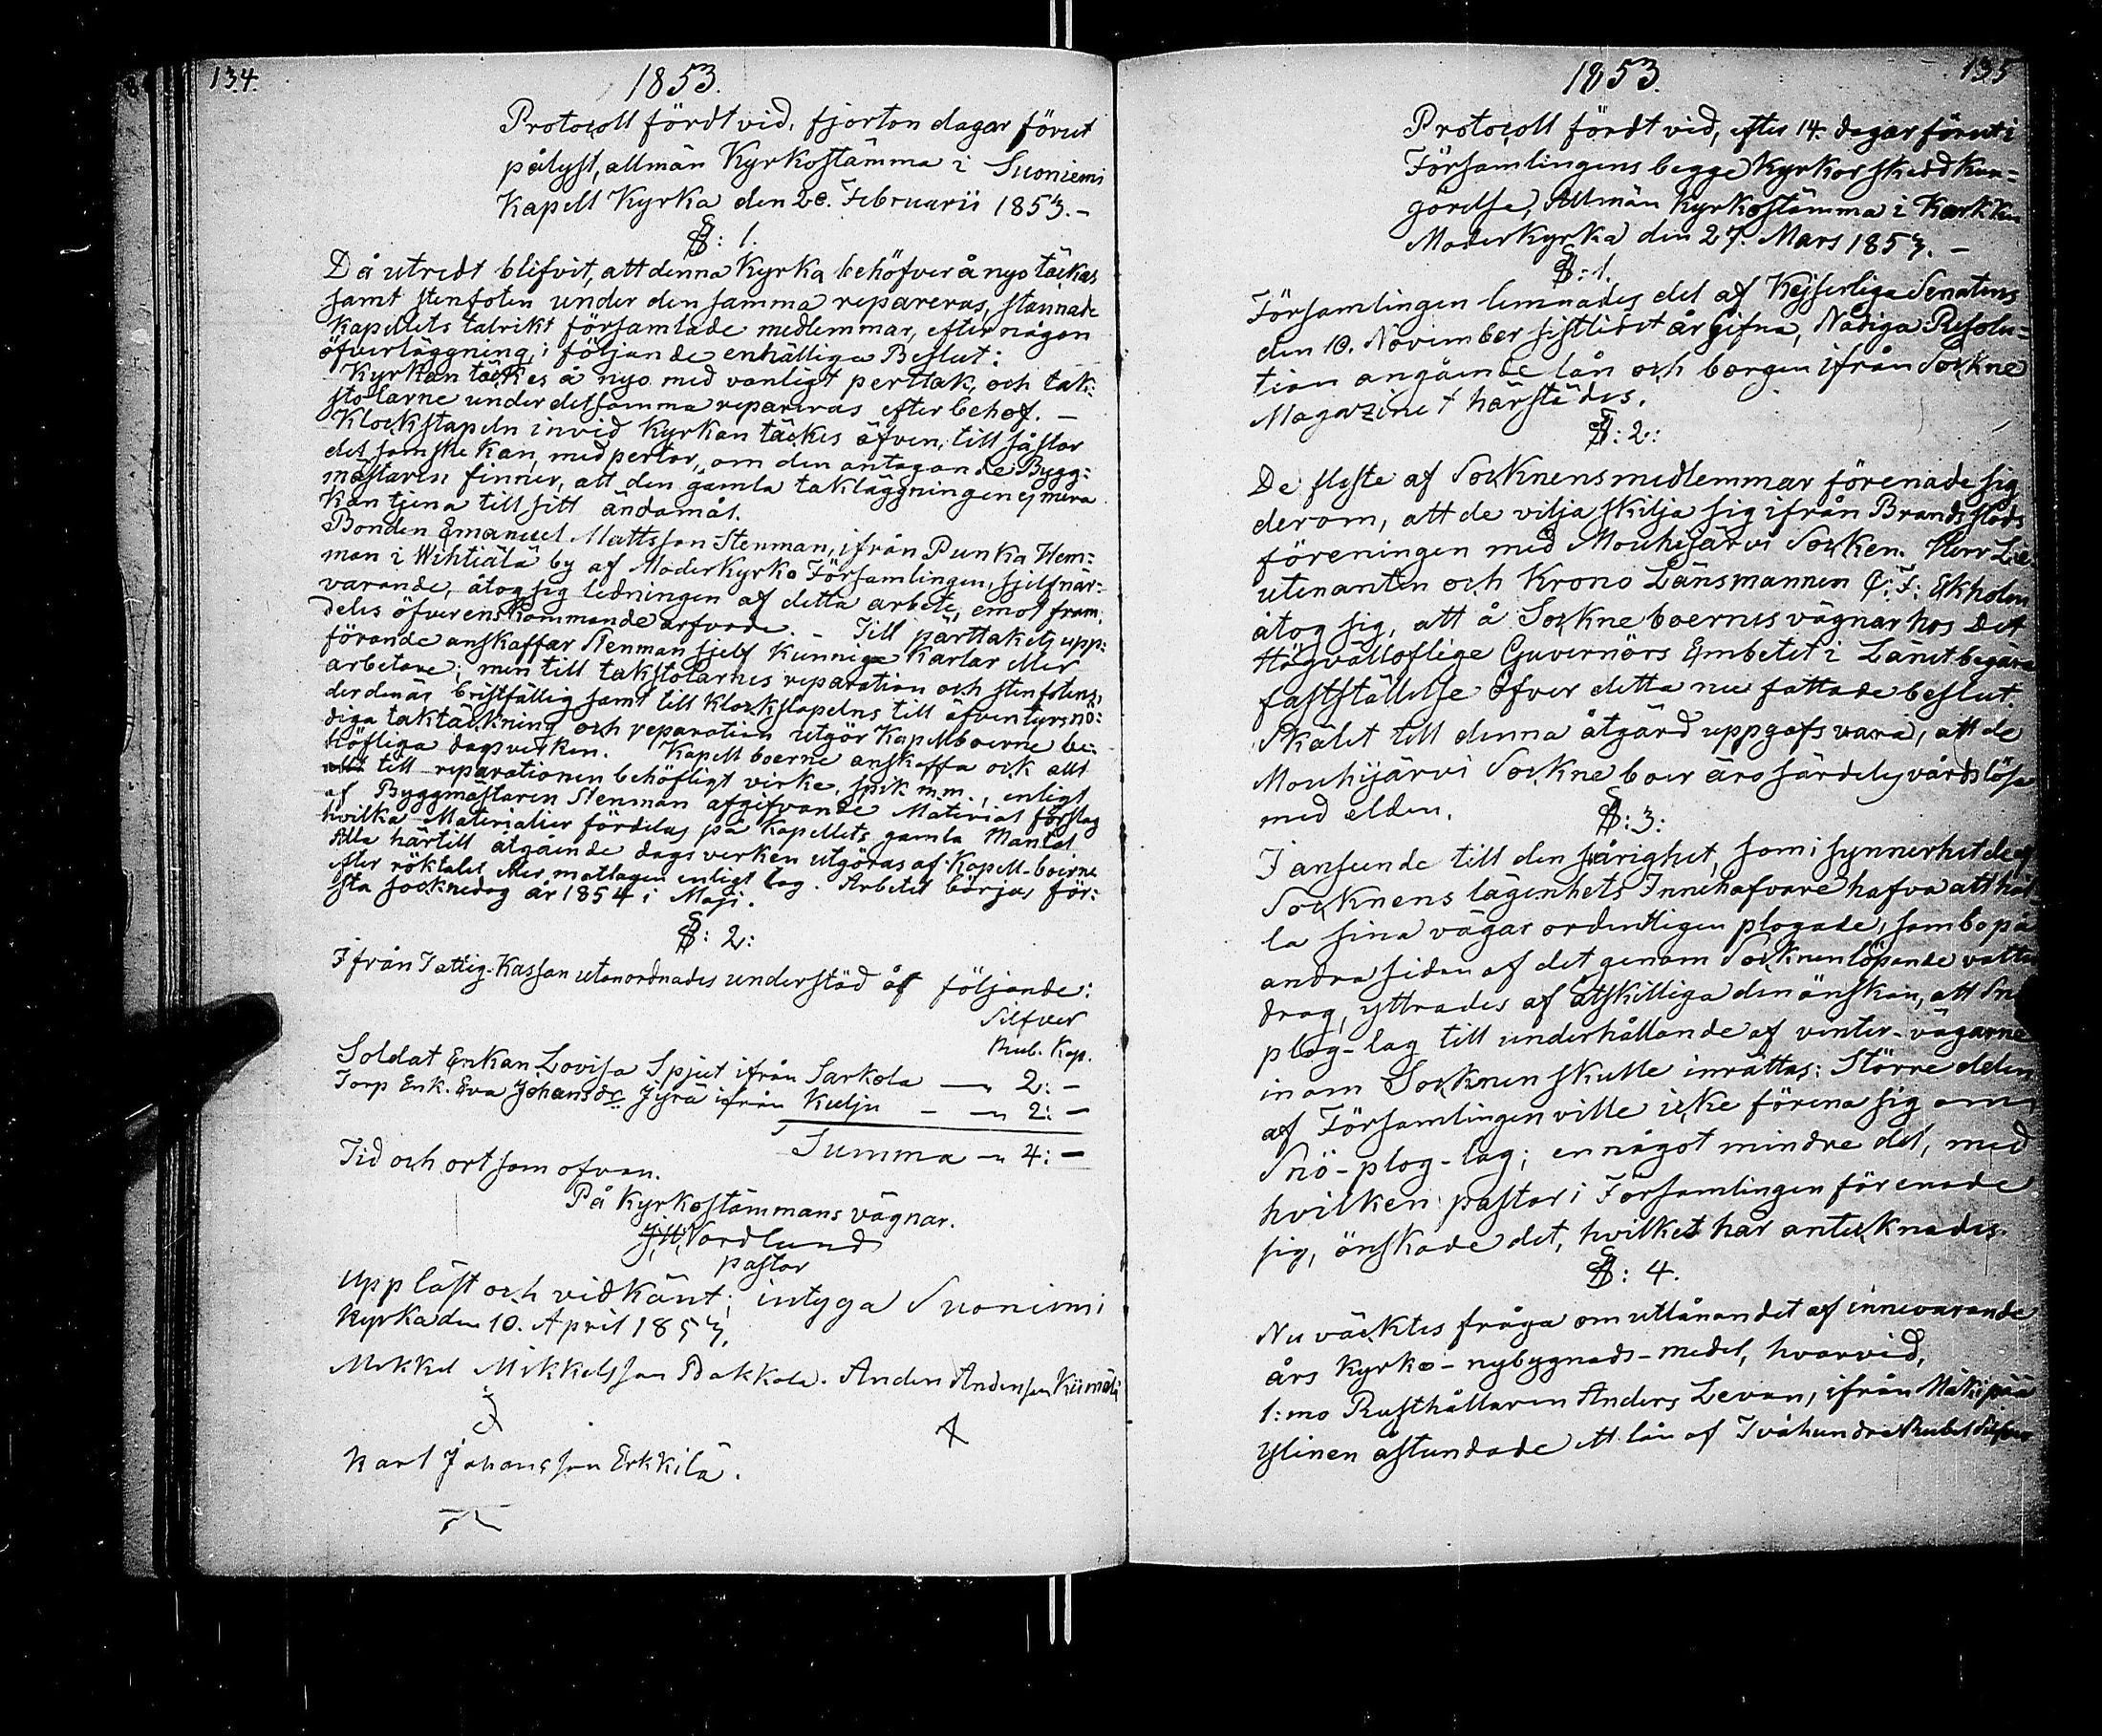 134.
1853.
Protocoll fördt vid, fjorton dagar förut
pålyst, allmän Kyrkostämma i Suoniemi
Kapell Kyrka den 20. Februarii 1853. -
§: 1.
Då utredt blifvit, att denna Kyrka behöfver å nyo täckas
samt stenfoten under densamma repareras, stannade
Kapellets talrikt församlade medlemmar, efter någon
öfverläggning, i följande enhälliga Beslut:
Kyrkan täckes å nyo med vanligt perttak, och tak-
stolarne under detsamma repareras efter behof. -
Klockstapeln invid Kyrkan täckes äfven, till så stor
del som ske kan, med pertor, om den antagande Bygg-
mästaren finner, att den gamla takläggningen ej mera
kan tjena till sitt ändamål.
Bonden Emanuel Mattsson Stenman, ifrån Punka Hem-
man i Wihtiälä by af Moderkyrko Församlingen, sjelfnär-
varande, åtog sig ledningen af detta arbete, emot fram-
deles öfverenskommande arfvode. - Till pärttakets upp-
förande anskaffar Stenman sjelf kunniga Karlar eller
arbetare; men till takstolarnes reparation och stenfotens,
der den är bristfällig samt till klockstapelns till äfventyrs nö-
diga taktäckning och reparation utgör Kapellboerne be-
höfliga dagsverken. Kapellboerne anskaffa ock allt
till reparationen behöfligt virke, spik m.m., enligt
af Byggmästaren Stenman afgifvande Material förslag
hvilka Materialier fördelas på Kapellets gamla Mantal
Alla härtill åtgående dagsverken utgöras af Kapell-boerne
efter röktalet eller matlagen enligt lag. Arbetet börjas för-
sta socknedag år 1854 i Maji.
§: 2:
Ifrån Fattig-Kassan utanordnades understöd åt följande:
Silfver
Rub. Kop.
Soldat Enkan Lovisa Spjut ifrån Sarkola — 2: -
Torp Enk. Eva Johansdr Jyrä ifrån Kulju - — 2: -
Summa — 4: -
Tid och ort som ofvan.
På Kyrkostämmans vägnar.
Nordlund
pastor
Uppläst och vidkänt; intyga Suoniemi
Kyrka den 10. April 1853.
Mikkel Mikkelsson Pakkala. Anders Andersson
Karl Johansson Erkkilä.
135
1853.
Protocoll fördt vid, efter 14. dagar förut i
Församlingens begge Kyrkor skedd kun-
görelse, Allmän Kyrkostämma i Karkku
Moderkyrka den 27. Mars 1853. -
§: 1.
Församlingen lemnades del af Kejserliga Senatens
den 10. November sistlidet år gifna, Nådiga Resolu-
tion angående lån och borgen ifrån Sockne
Magazinet härstädes.
§: 2:
De fleste af Socknens medlemmar förenade sig
derom, att de vilja skilja sig ifrån Brandstods
föreningen med Mouhijärvi Socken. Herr Lie-
utenanten och Krono Länsmannen C: F: Ekholm
åtog sig, att å Sockneboernes vägnar hos Det
Högvälloflige Guvernörs Embetet i Länet begära
fastställelse öfver detta nu fattade beslut.
Skälet till denna åtgärd uppgafs vara, att de
Mouhijärvi Sockneboer äro särdeles vårdslösa
med elden.
§: 3:
I anseende till den svårighet, som i synnerhet de af
Socknens lägenhets Innehafvare hafva att hål-
la sina vägar ordentligen plogade, som bo på
andra sidan af det genom Socknen löpande vatten
drag, yttrades af åtskilliga den önskan, att Snö
plog-lag till underhållande af vinter-vägarne
inom Socknen skulle inrättas: Större delen
af Församlingen ville icke förena sig om
Snö-plog-lag; en något mindre del, med
hvilken pastor i Församlingen förenade
sig, önskade det, hvilket här antecknades.
§: 4.
Nu väcktes fråga om utlånandet af innevarande
års Kyrko-nybygnads-medel, hvarvid,
1:mo Rusthållaren Anders Levan, ifrån Mäkipää
Ylinen åstundade ett lån af Tvåhundra Rubel Silfver